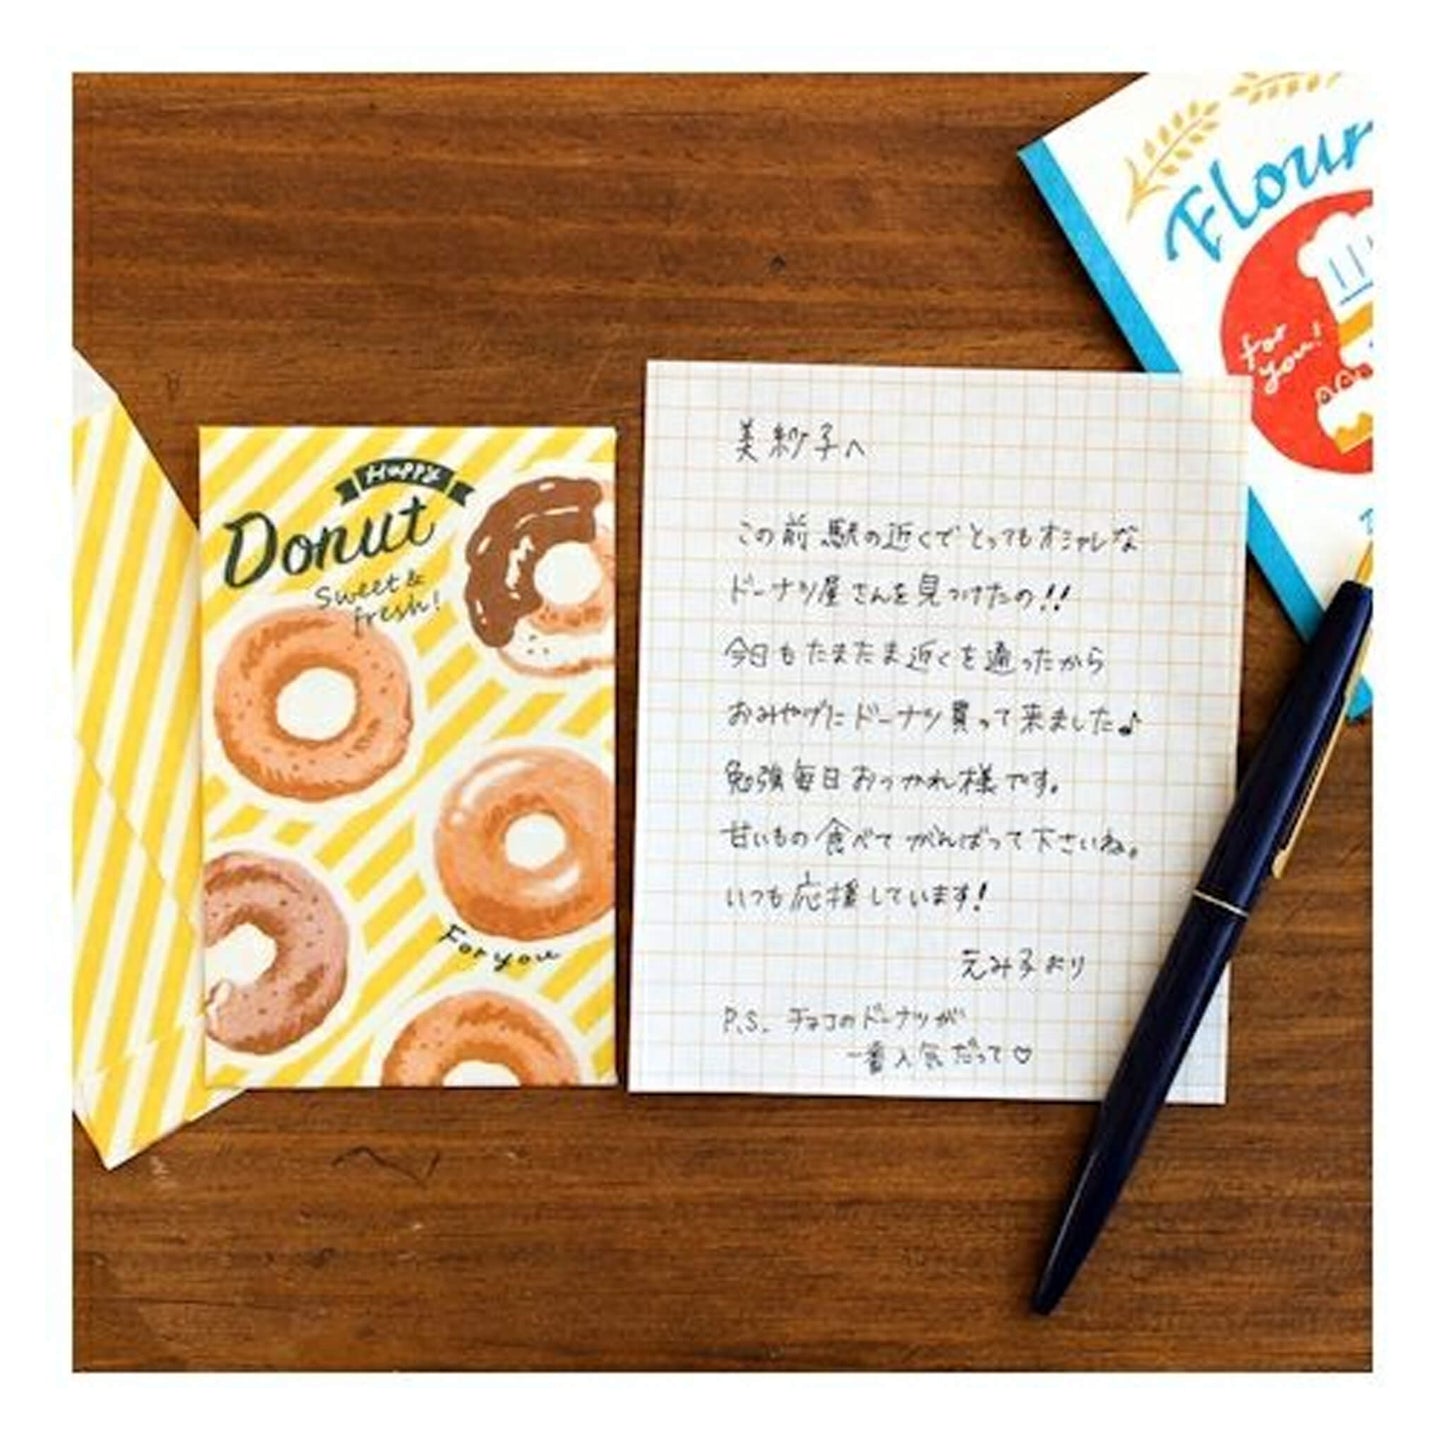 Happy
Donut
Sweet &
fresh!
For you
美紗子へ
この前駅の近くでとってもオシャレな
ドーナツ屋さんを見つけたの!!
今日もたまたま近くを通ったから
おみやげにドーナツ買って来ました♪
勉強毎日おつかれ様です。
甘いもの食べてがんばって下さいね。
いつも応援しています!
えみ子より
P.S. チョコのドーナツが
一番人気だって♡
Flour
for
you!